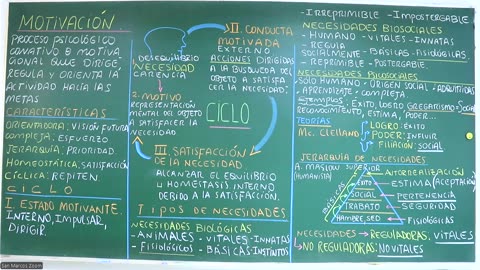 MOTIVACIÓN
PROCESO PSICOLÓGICO
CONATIVO O MOTIVA
CIONAL QUE DIRIGE,
REGULA Y ORIENTA LA
ACTIVIDAD HACIA LAS
METAS.
CARACTERÍSTICAS
ORIENTADORA: VISIÓN FUTURA
COMPLEJA: ESFUERZO
JERARQUÍA: PRIORIDAD
HOMEOSTÁTICA: SATISFACCIÓN
CÍCLICA: REPITEN.
CICLO
I. ESTADO MOTIVANTE.
INTERNO, IMPULSAR,
DIRIGIR.
1. DESEQUILIBRIO
NECESIDAD
CARENCIA
2. MOTIVO
REPRESENTACIÓN
MENTAL DEL OBJETO
A SATISFACER LA
NECESIDAD
II. CONDUCTA
MOTIVADA
EXTERNO
ACCIONES DIRIGIDAS
A LA BUSQUEDA DEL
OBJETO A SATISFA
CER LA NECESIDAD.
CICLO
III. SATISFACCIÓN
DE LA NECESIDAD.
ALCANZAR EL EQUILIBRIO
U HOMEOSTASIS INTERNO
DEBIDO A LA SATISFACCIÓN.
TIPOS DE NECESIDADES.
NECESIDADES BIOLÓGICAS
- ANIMALES - VITALES - INNATAS
- FISIOLÓGICOS - BÁSICAS - INSTINTOS
- IRREPRIMIBLE - IMPOSTERGABLE.
NECESIDADES BIOSOCIALES
- HUMANO - VITALES - INNATAS
- REGULA
SOCIALMENTE - BÁSICAS - FISIOLÓGICAS.
- REPRIMIBLE - POSTERGABLE.
NECESIDADES PSICOSOCIALES
- SOLO HUMANO - ORIGEN SOCIAL - ADQUIRIDAS
- APRENDIZAJE - COMPLETA
EJEMPLOS: ÉXITO, LOGRO, GREGARISMO=SOCIAL
RECONOCIMIENTO, ESTIMA, PODER...
TEORÍAS
Mc. Clelland
LOGRO: ÉXITO
PODER: INFLUIR
FILIACIÓN: SOCIAL
JERARQUÍA DE NECESIDADES
A. MASLOW SUPERIOR
(HUMANISTA)
AUTORREALIZACIÓN
ÉXITO
ESTIMA (ACEPTACIÓN)
SOCIAL
PERTENENCIA
TRABAJO
SEGURIDAD
HAMBRE, SED
FISIOLÓGICAS
BÁSICAS
NECESIDADES → REGULADORAS: VITALES
→ NO REGULADORAS: NO VITALES
San Marcos Zoom